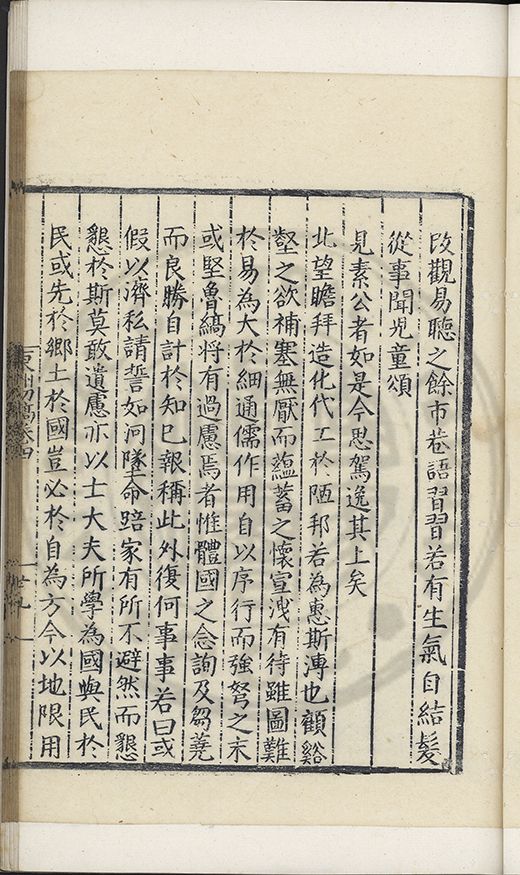 改觀易聽之餘市巷語習習若有生氣自結髮
從事聞兒童頌
見素公者如是今思駕逸其上矣
北望瞻拜造化代工於陋邦若為惠斯溥也顧谿
壑之欲補塞無厭而蘊蓄之懷宣洩有待雖圖難
於易為大於細通儒作用自以序行而強弩之末
或堅魯縞將有過慮焉者惟體國之念詢及芻蕘
而良勝自計於知己報稱此外復何事事若曰或
假以濟私請誓如河墜命踣家有所不避然而懇
懇於斯莫敢遺慮亦以士大夫所學為國與民於
民或先於鄉土於國豈必於自為方今以地限用
東洲初稿卷四
世九